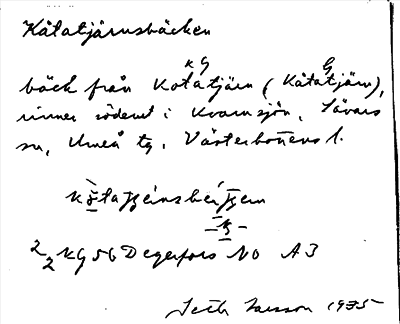 Kåtatjärnsbäcken
KG G
bäck från Kotatjärn (Kåtatjärn),
rinner söderut i Kvarnsjön, Sävars
sn, Umeå tg, Västerbottens l.
KG 56 Degerfors NO A3
Seth Larsson 1935